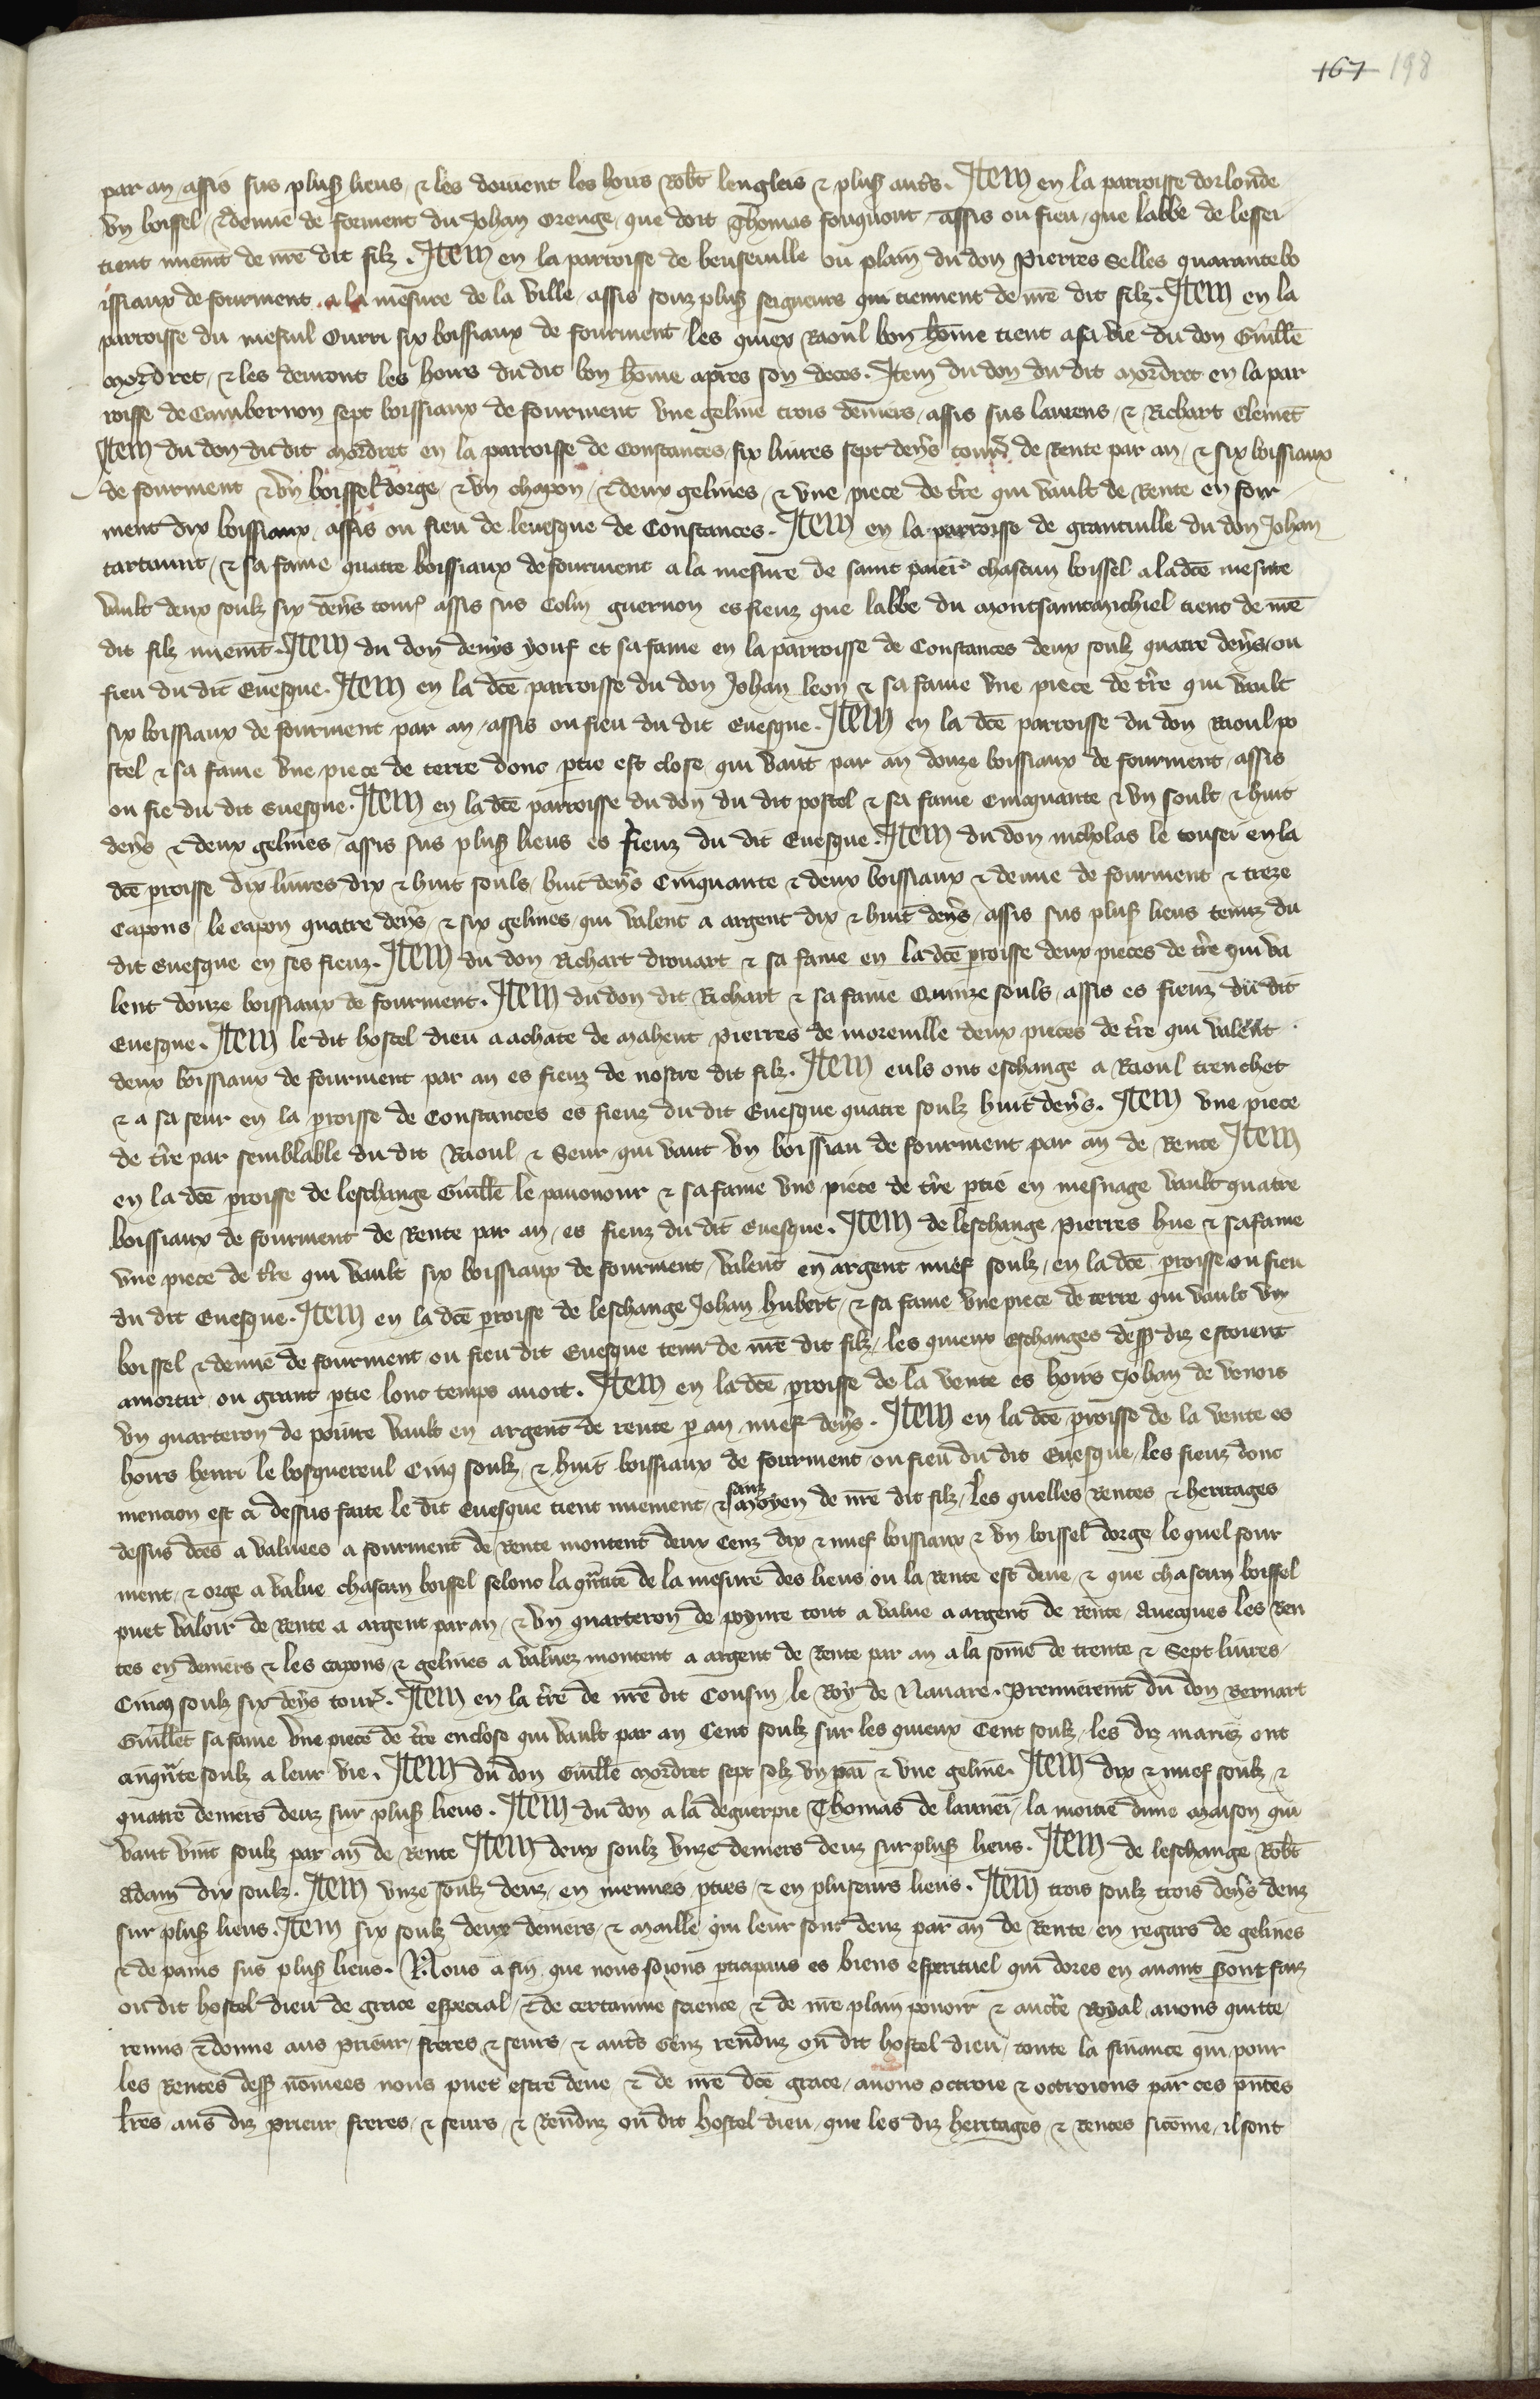 167 198
par an assis sus plus̃ lieus / & les doivent les hoirs Rob̃t lengleis & plus̃ aut̃s. Item en la parroisse dorlonde
vn boissel / & demie de forment du Johan Orenge / que doit Thomas fouquout / assis ou fieu / que labbe de lessei
tient nuem̃t de nr̃e dit filz. Item en la parroisse de beuseuille ou plain du don Pierres Selles quarante bo
issiaux de fourment a la mesure de la ville / assis souz plus̃ seigneurs qui tiennent de nr̃e dit filz. Item en la
parroisse du mesnil Ourri six boissiaux de fourment / les quiex Raoul bon hom̃e tient a sa vie du don Guill̃e
Mordret / & les devront les hoirs du dit bon hom̃e apres son deces. Item du don du dit Mordret en la par
roisse de Cambernon sept boissiaux de fourment vne geline trois deniers / assis sus laurens / & Richart Clemẽt
Item du don du dit Mordret en la parroisse de Constances / six liures sept den̑s tour̃ de Rente par an / & six boissiaux
de fourment & vn boissel dorge / & vn chapon / & deux gelines / & vne piece de t̃re qui vault de Rente en four
ment dix boissiaux assis ou fieu de leuesque de Constances. Item en la parroisse de grantuille du don Johan
tartaurit / & sa fame quatre boissiaux de fourment a la mesure de saint paier̃ chascun boissel a la dc̃e mesure
vault deux soulz six den̑s tour̃ assis sus Colin guernon es fieuz que labbe du montsaintmichiel tient de nr̃e
dit filz nuem̃t. Item du don denys youf et sa fame en la parroisse de Constances deux soulz quatre den̑s / ou
fieu du dit Euesque. Item en la dc̃e parroisse du don Johan leon & sa fame vne piece de t̃re qui vault
six boissiaux de fourment par an / assis ou fieu du dit Euesque. Item en la dc̃e parroisse du don Raoul po
stel & sa fame vne piece de terre donc p̃tie est close / qui vaut par an douze boissiaux de fourment / assis
ou fie du dit Euesque. Item en la dc̃e parroisse du don du dit postel & sa fame Cinquante & vn soult & huit
den̑s & deux gelines / assis sus plus̃ lieus es fieuz du dit Euesque. Item du don nicholas le touser en la
dc̃e p̃roisse dix liures dix & huit souls / huit den̑s Cinquante & deux boissiaux & demie de fourment & treze
Capons / le capon quatre den̑s / & six gelines / qui valent a argent dix & huit den̑s / assis sus plus̃ lieus tenuz du
dit Euesque en ses fieuz. Item du don Richart drouart & sa fame en la dc̃e p̃roisse deux pieces de t̃re qui va
lent douze boissiaux de fourment. Item du don dit Richart & sa fame Quinze souls / assis es fieuz du dit
Euesque. Item le dit hostel dieu a achate de Maheut Pierres de moreuille deux pieces de t̃re qui valent
deux boissiaux de fourment par an es fieuz de nostre dit filz. Item euls ont eschange a Raoul trenchet
& a sa seur en la p̃roisse de Constances es fieuz du dit Euesque quatre soulz huit den̑s. Item vne piece
de t̃re par semblable du dit Raoul & Seur / qui vaut vn boissiau de fourment par an de Rente Item
en la dc̃e p̃roisse de leschange Guill̃e le pauonour & sa fame vne piece de t̃re p̃tie en mesnage vault quatre
boissiaux de fourment de Rente par an / es fieuz du dit Euesque. Item de leschange Pierres hue & sa fame
vne piece de t̃re qui vault six boissiaux de fourment / valent en argent nuef soulz / en la dc̃e p̃roisse ou fieu
du dit Euesque. Item en la dc̃e p̃roisse de leschange Johan hubert / & sa fame vne piece de terre qui vault vn
boissel & demie de fourment ou fieu dit Euesque tenu de nr̃e dit filz / les quieux eschanges dess̃ diz estoient
amortiz ou grant p̃tie lonc temps auoit. Item en la dc̃e p̃roisse de la vente es hoirs Johan de venois
vn quarteron de poiure vault en argent de rente p̃ an nuef den̑s. Item en la dc̃e p̃roisse de la vente es
hoirs henri le bosquereul Cinq soulz / & huit boissiaux de fourment / ou fieu du dit Euesque / les fieuz donc
mencion est ci dessus faite le dit Euesque tient nuement / & sanz moyen de nr̃e dit filz / les quelles Rentes & heritages
dessus dc̃es a valuees a fourment de Rente montent deux Cenz dix & nuef boissiaux & vn boissel dorge / le quel four
ment / & orge a value chascun boissel selonc la q̃ntite de la mesure des lieus ou la Rente est deue / & que chascun boissel
puet valoir de Rente a argent par an / & vn quarteron de poyure tout a value a argent de Rente / Auecques les Ren
tes en deniers & les capons / & gelines a valuez montent a argent de Rente par an a la som̃e de trente & Sept liures /
Cinq soulz six den̑s tour̃. Item en la t̃re de nr̃e dit Cousin / le Roy de Nauare. Premierem̃t du don Bernart
Guillet sa fame vne piece de t̃re enclose qui vault par an Cent soulz sur les quieux Cent soulz / les diz mariez ont
cinq̃nte soulz a leur vie. Item du don Guill̃e Mordret sept solz vn pain & vne geline. Item dix & nuef soulz &
quatre deniers deuz sur plus̃ lieus. Item du don a la deguerpie Thomas de launei / la moitie dune maison qui
vaut vint soulz par an de Rente Item deux soulz vnze deniers deuz sur plus̃ lieus. Item de leschange Rob̃t
Adam dix soulz. Item vnze soulz deuz / en menues p̃ties / & en pluseurs lieus. Item trois soulz trois den̑s deuz
sur plus̃ lieus. Item six soulz deux deniers / & maille qui leur sont deuz par an de Rente / en regars de gelines
& de pains sus plus̃ lieus. Nous a fin que nous soions p̃ticipans es biens esperituel qui dores en auant s̃ont faiz
ou dit hostel dieu de grace especial / & de certainne science / & de nr̃e plain pouoir & auct̃e Royal auons quitte /
remis & donne aus prieur / freres & seurs / & aut̃s Genz renduz ou dit hostel dieu / toute la finance qui pour
les Rentes dess̃ nom̃ees nous puet estre deue & de nr̃e dc̃e grace / auons octroie & octroions par ces p̃ntes
lr̃es aus diz prieur freres / & seurs / & Renduz ou dit hostel dieu / que les diz heritages & rentes si com̃e il sont